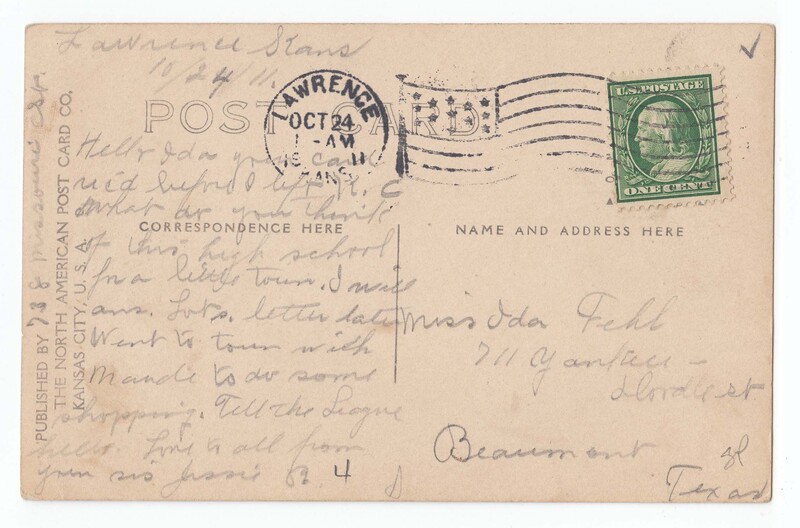 Lawrence Kans
10/24/11.
POST CARD
LAWRENCE
OCT 24
1 - AM
1911
KANS.
U.S. POSTAGE
ONE CENT
Hello Ida your card
rec'd before I left K. C
What do you think
CORRESPONDENCE HERE
NAME AND ADDRESS HERE
of this high school
for a little town. I will
ans. Lots. letter later
Went to town with
Maude to do some
shopping. Tell the League
hello. Love to all from
your sis Jessie R. 4
Miss Ida Fehl
711 Yankee -
st
Beaumont
Texas
738 Missouri
PUBLISHED BY
THE NORTH AMERICAN POST CARD CO.
KANSAS CITY, U. S. A.